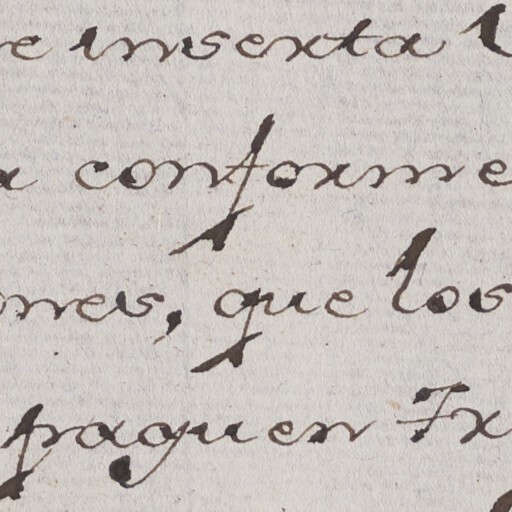 e inserta l
a conforme
ones, que los
paguen Tr